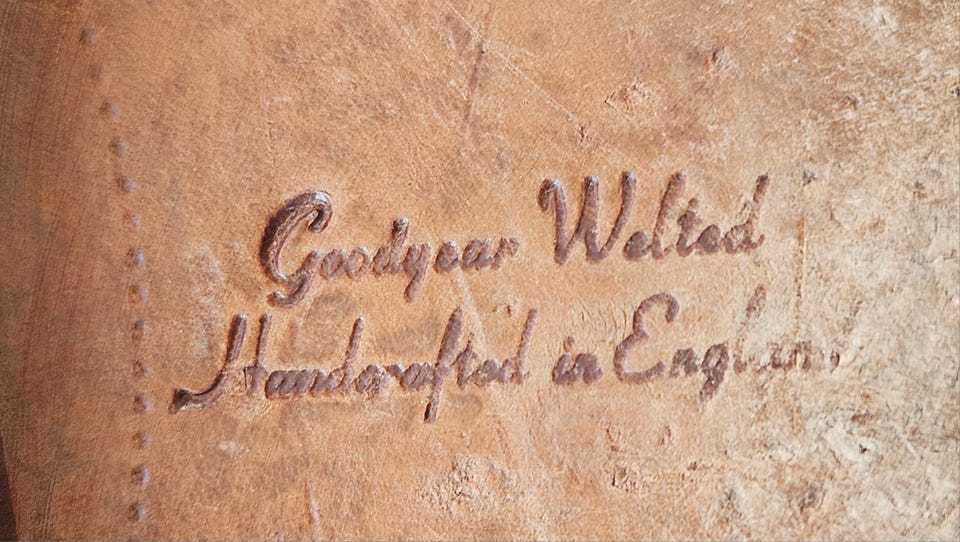 Goodyear Welted
Handcrafted in England